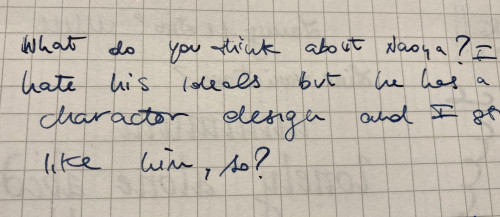 What do you think about Naoya? I
hate his ideals but he has a
character design and I
like him, so?